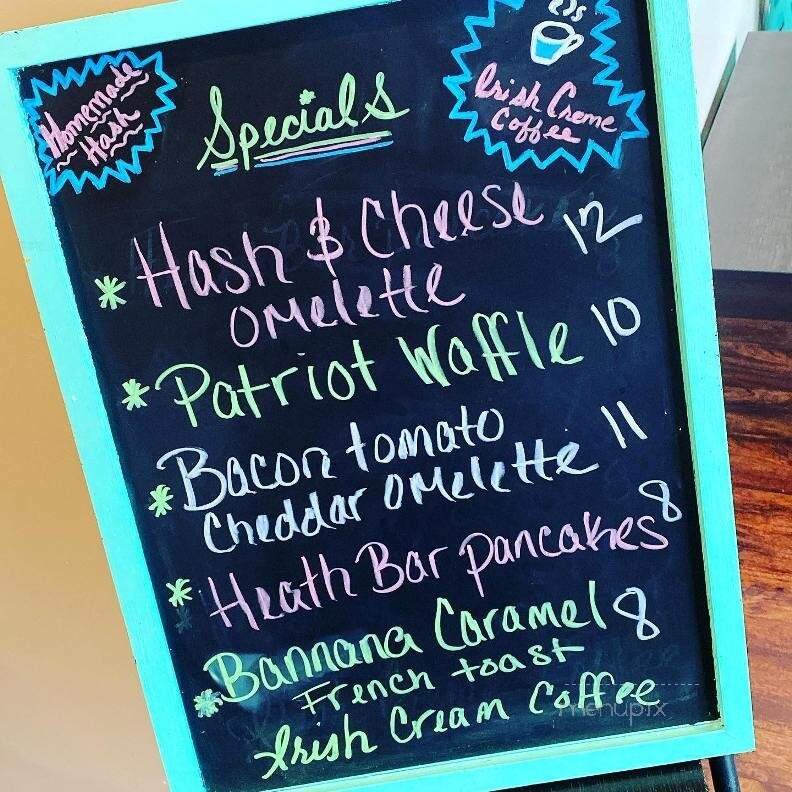 Homemade
Hash
Specials
Irish Creme
Coffee
* Hash & Cheese 12
Omelette
* Patriot Waffle 10
* Bacon tomato
Cheddar omelette 11
* Heath Bar pancakes 8
* Bannana Caramel 8
French toast
Irish Cream Coffee
menupix